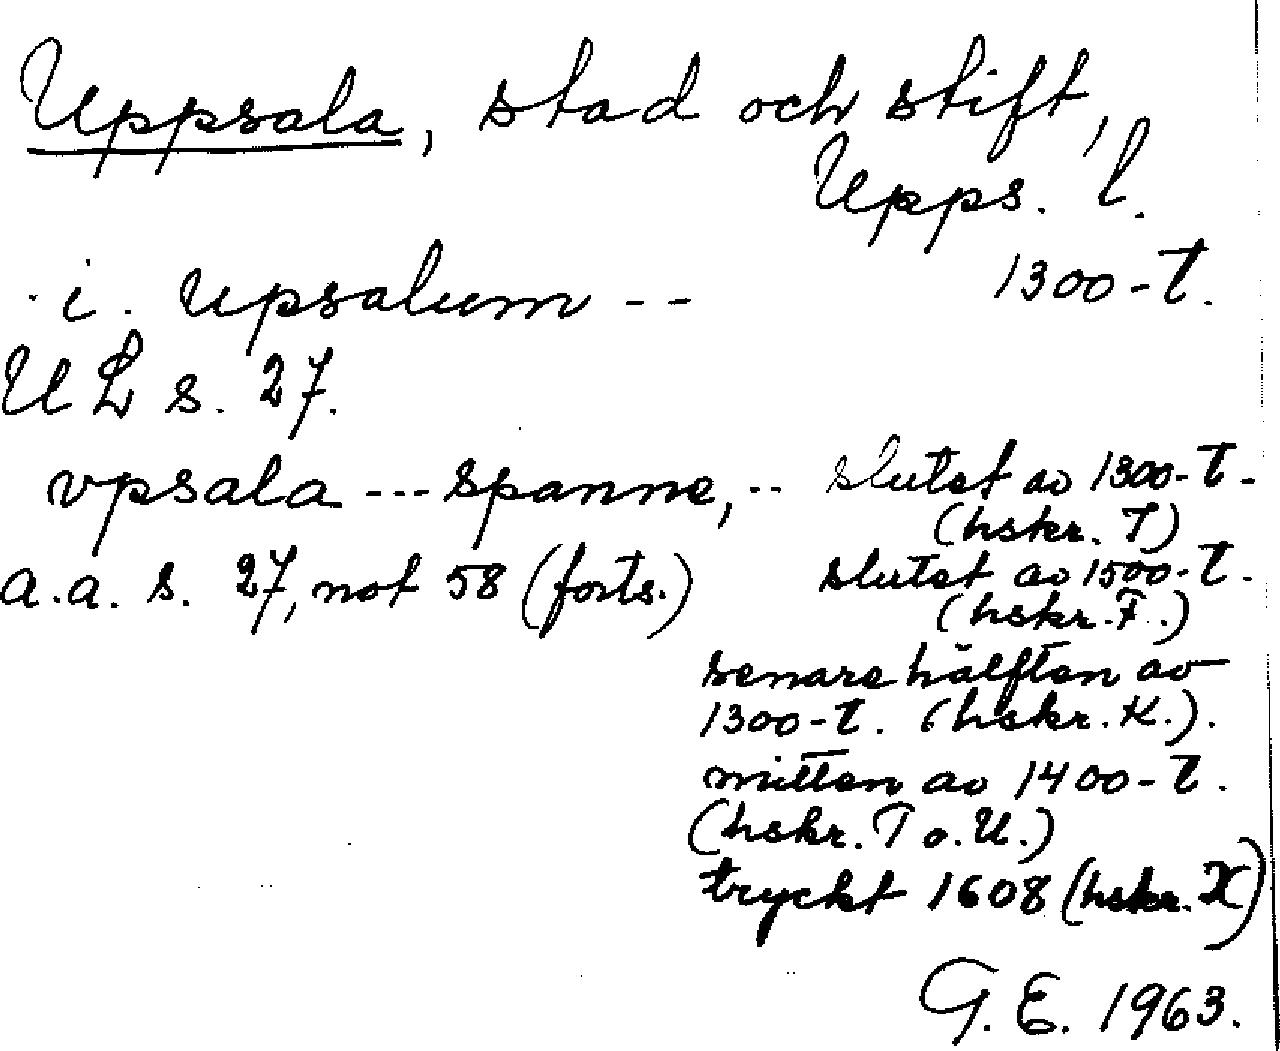 Uppsala, stad och stift,
Upps. l.
i. upsalum -- 1300-t.
UL s. 27.
vpsala --- spanne, -- slutet av 1300-t.
(hskr. T)
a.a. s. 27, not 58 (forts.) slutet av 1500-t.
(hskr. F.)
senare hälften av
1300-t. (hskr. K.).
mitten av 1400-t.
(hskr. T o. U.)
tryckt 1608 (hskr. X)
G. E. 1963.